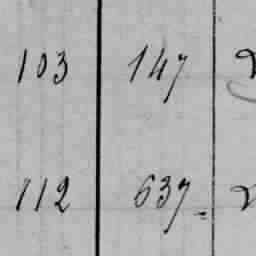 103 147
112 637